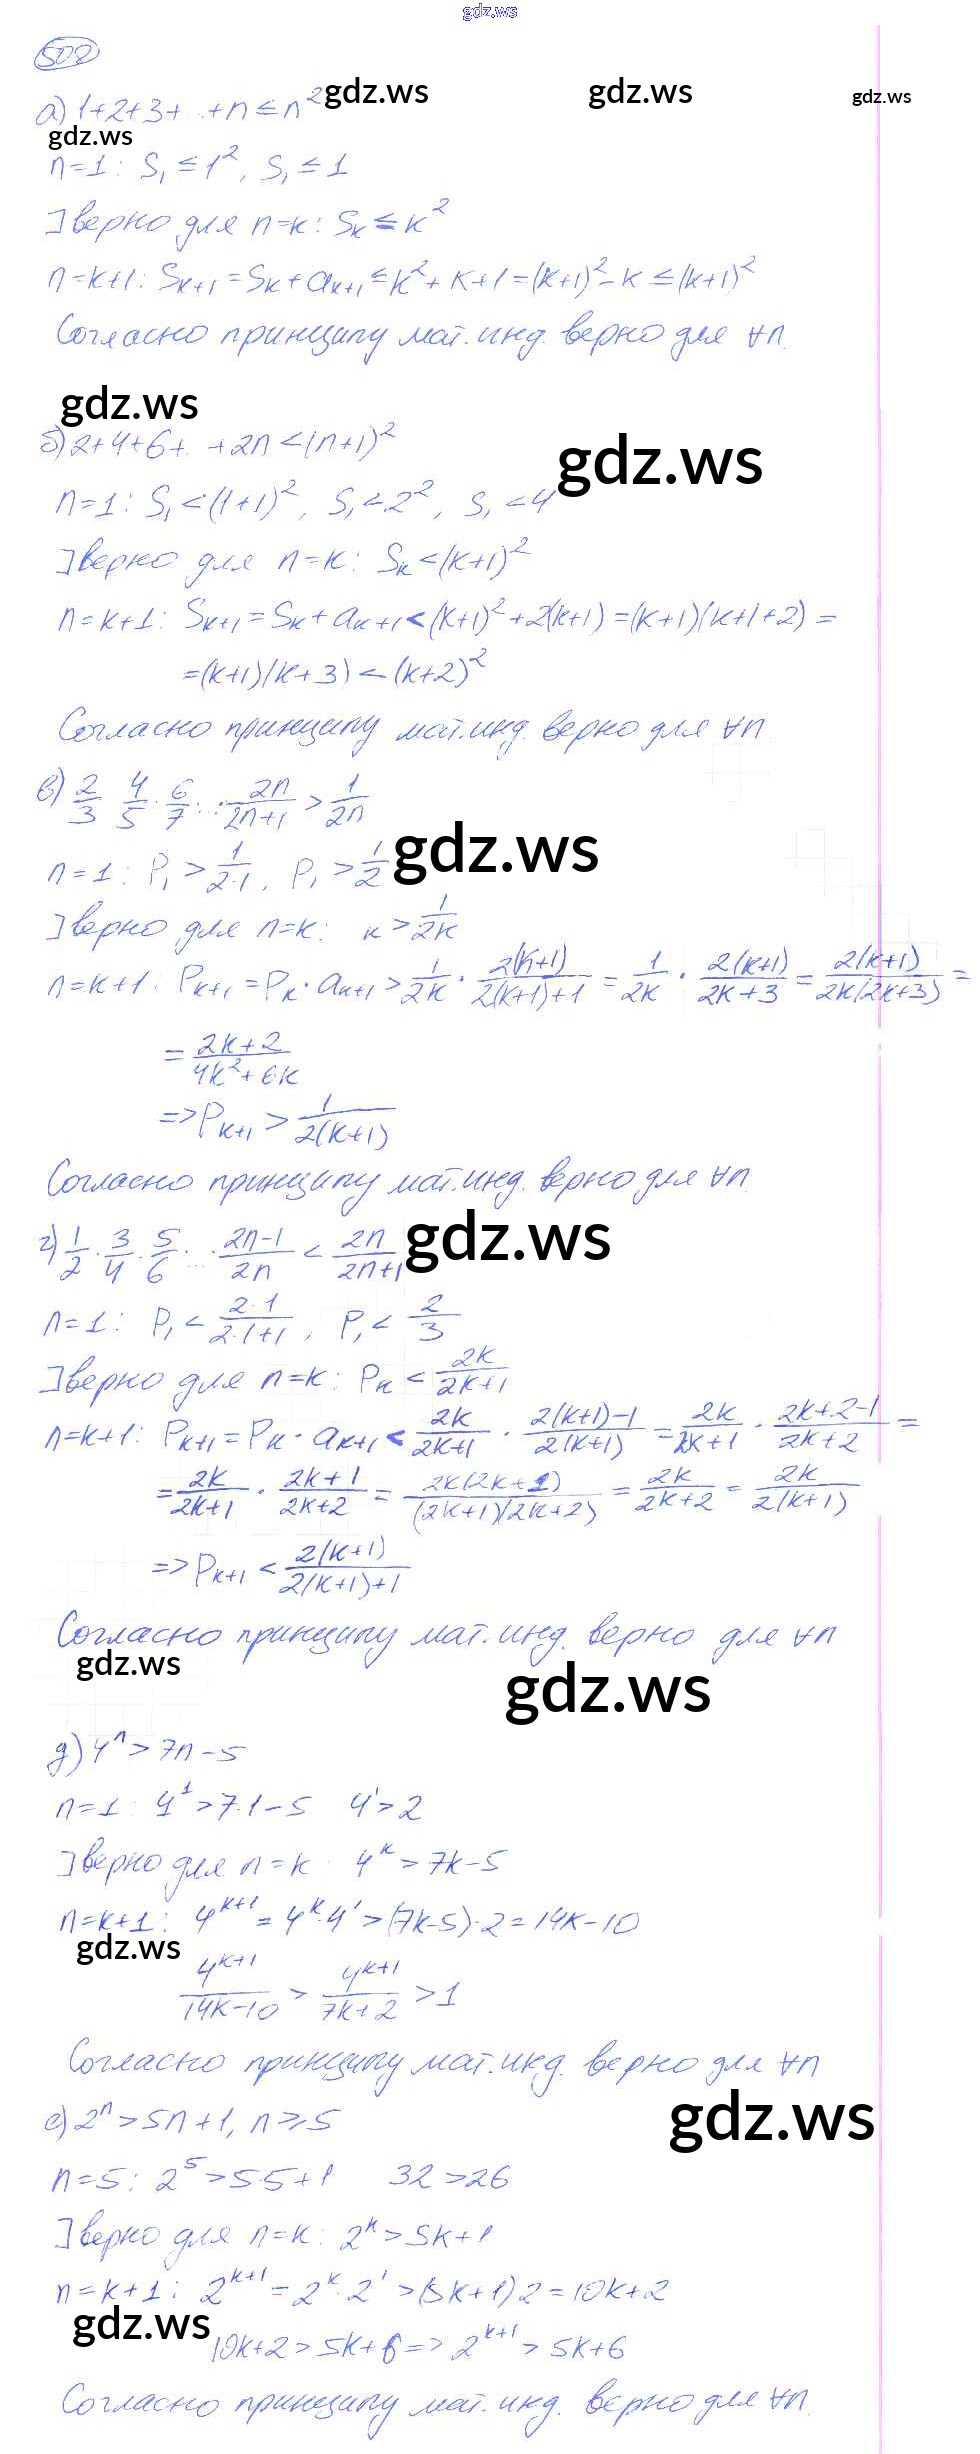 gdz.ws
508
а) 1+2+3+...+n ≤ n² gdz.ws gdz.ws gdz.ws
gdz.ws
n=1: S₁ ≤ 1², S₁ ≤ 1
] верно для n=k: Sₖ ≤ k²
n=k+1: Sₖ₊₁ = Sₖ + aₖ₊₁ ≤ k² + k + 1 = (k+1)² - k ≤ (k+1)²
Согласно принципу мат. инд. верно для ∀n.
gdz.ws
б) 2+4+6+...+2n < (n+1)²
gdz.ws
n=1: S₁ < (1+1)², S₁ < 2², S₁ < 4
] верно для n=k: Sₖ < (k+1)²
n=k+1: Sₖ₊₁ = Sₖ + aₖ₊₁ < (k+1)² + 2(k+1) = (k+1)(k+1+2) =
= (k+1)(k+3) < (k+2)²
Согласно принципу мат. инд. верно для ∀n.
в) 2/3 · 4/5 · 6/7 · ... · 2n/(2n+1) > 1/(2n)
gdz.ws
n=1: P₁ > 1/(2·1), P₁ > 1/2
] верно для n=k: ₖ > 1/(2k)
n=k+1: Pₖ₊₁ = Pₖ · aₖ₊₁ > 1/(2k) · 2(k+1)/(2(k+1)+1) = 1/(2k) · 2(k+1)/(2k+3) = 2(k+1)/(2k(2k+3)) =
= (2k+2)/(4k²+6k)
=> Pₖ₊₁ > 1/(2(k+1))
Согласно принципу мат. инд. верно для ∀n.
г) 1/2 · 3/4 · 5/6 · ... · (2n-1)/(2n) < 2n/(2n+1) gdz.ws
n=1: P₁ < (2·1)/(2·1+1), P₁ < 2/3
] верно для n=k: Pₖ < 2k/(2k+1)
n=k+1: Pₖ₊₁ = Pₖ · aₖ₊₁ < 2k/(2k+1) · (2(k+1)-1)/(2(k+1)) = 2k/(2k+1) · (2k+2-1)/(2k+2) =
= 2k/(2k+1) · (2k+1)/(2k+2) = 2k(2k+1)/((2k+1)(2k+2)) = 2k/(2k+2) = 2k/(2(k+1))
=> Pₖ₊₁ < 2(k+1)/(2(k+1)+1)
Согласно принципу мат. инд. верно для ∀n
gdz.ws
gdz.ws
д) 4ⁿ > 7n - 5
n=1: 4¹ > 7·1 - 5 4¹ > 2
] верно для n=k 4ᵏ > 7k - 5
n=k+1: 4ᵏ⁺¹ = 4ᵏ·4¹ > (7k-5)·2 = 14k - 10
gdz.ws
4ᵏ⁺¹/(14k-10) > 4ᵏ⁺¹/(7k+2) > 1
Согласно принципу мат. инд. верно для ∀n
gdz.ws
е) 2ⁿ > 5n + 1, n ≥ 5
n=5: 2⁵ > 5·5 + 1 32 > 26
] верно для n=k: 2ᵏ > 5k + 1
n=k+1: 2ᵏ⁺¹ = 2ᵏ·2¹ > (5k+1)2 = 10k + 2
gdz.ws
10k+2 > 5k+6 => 2ᵏ⁺¹ > 5k+6
Согласно принципу мат. инд. верно для ∀n.